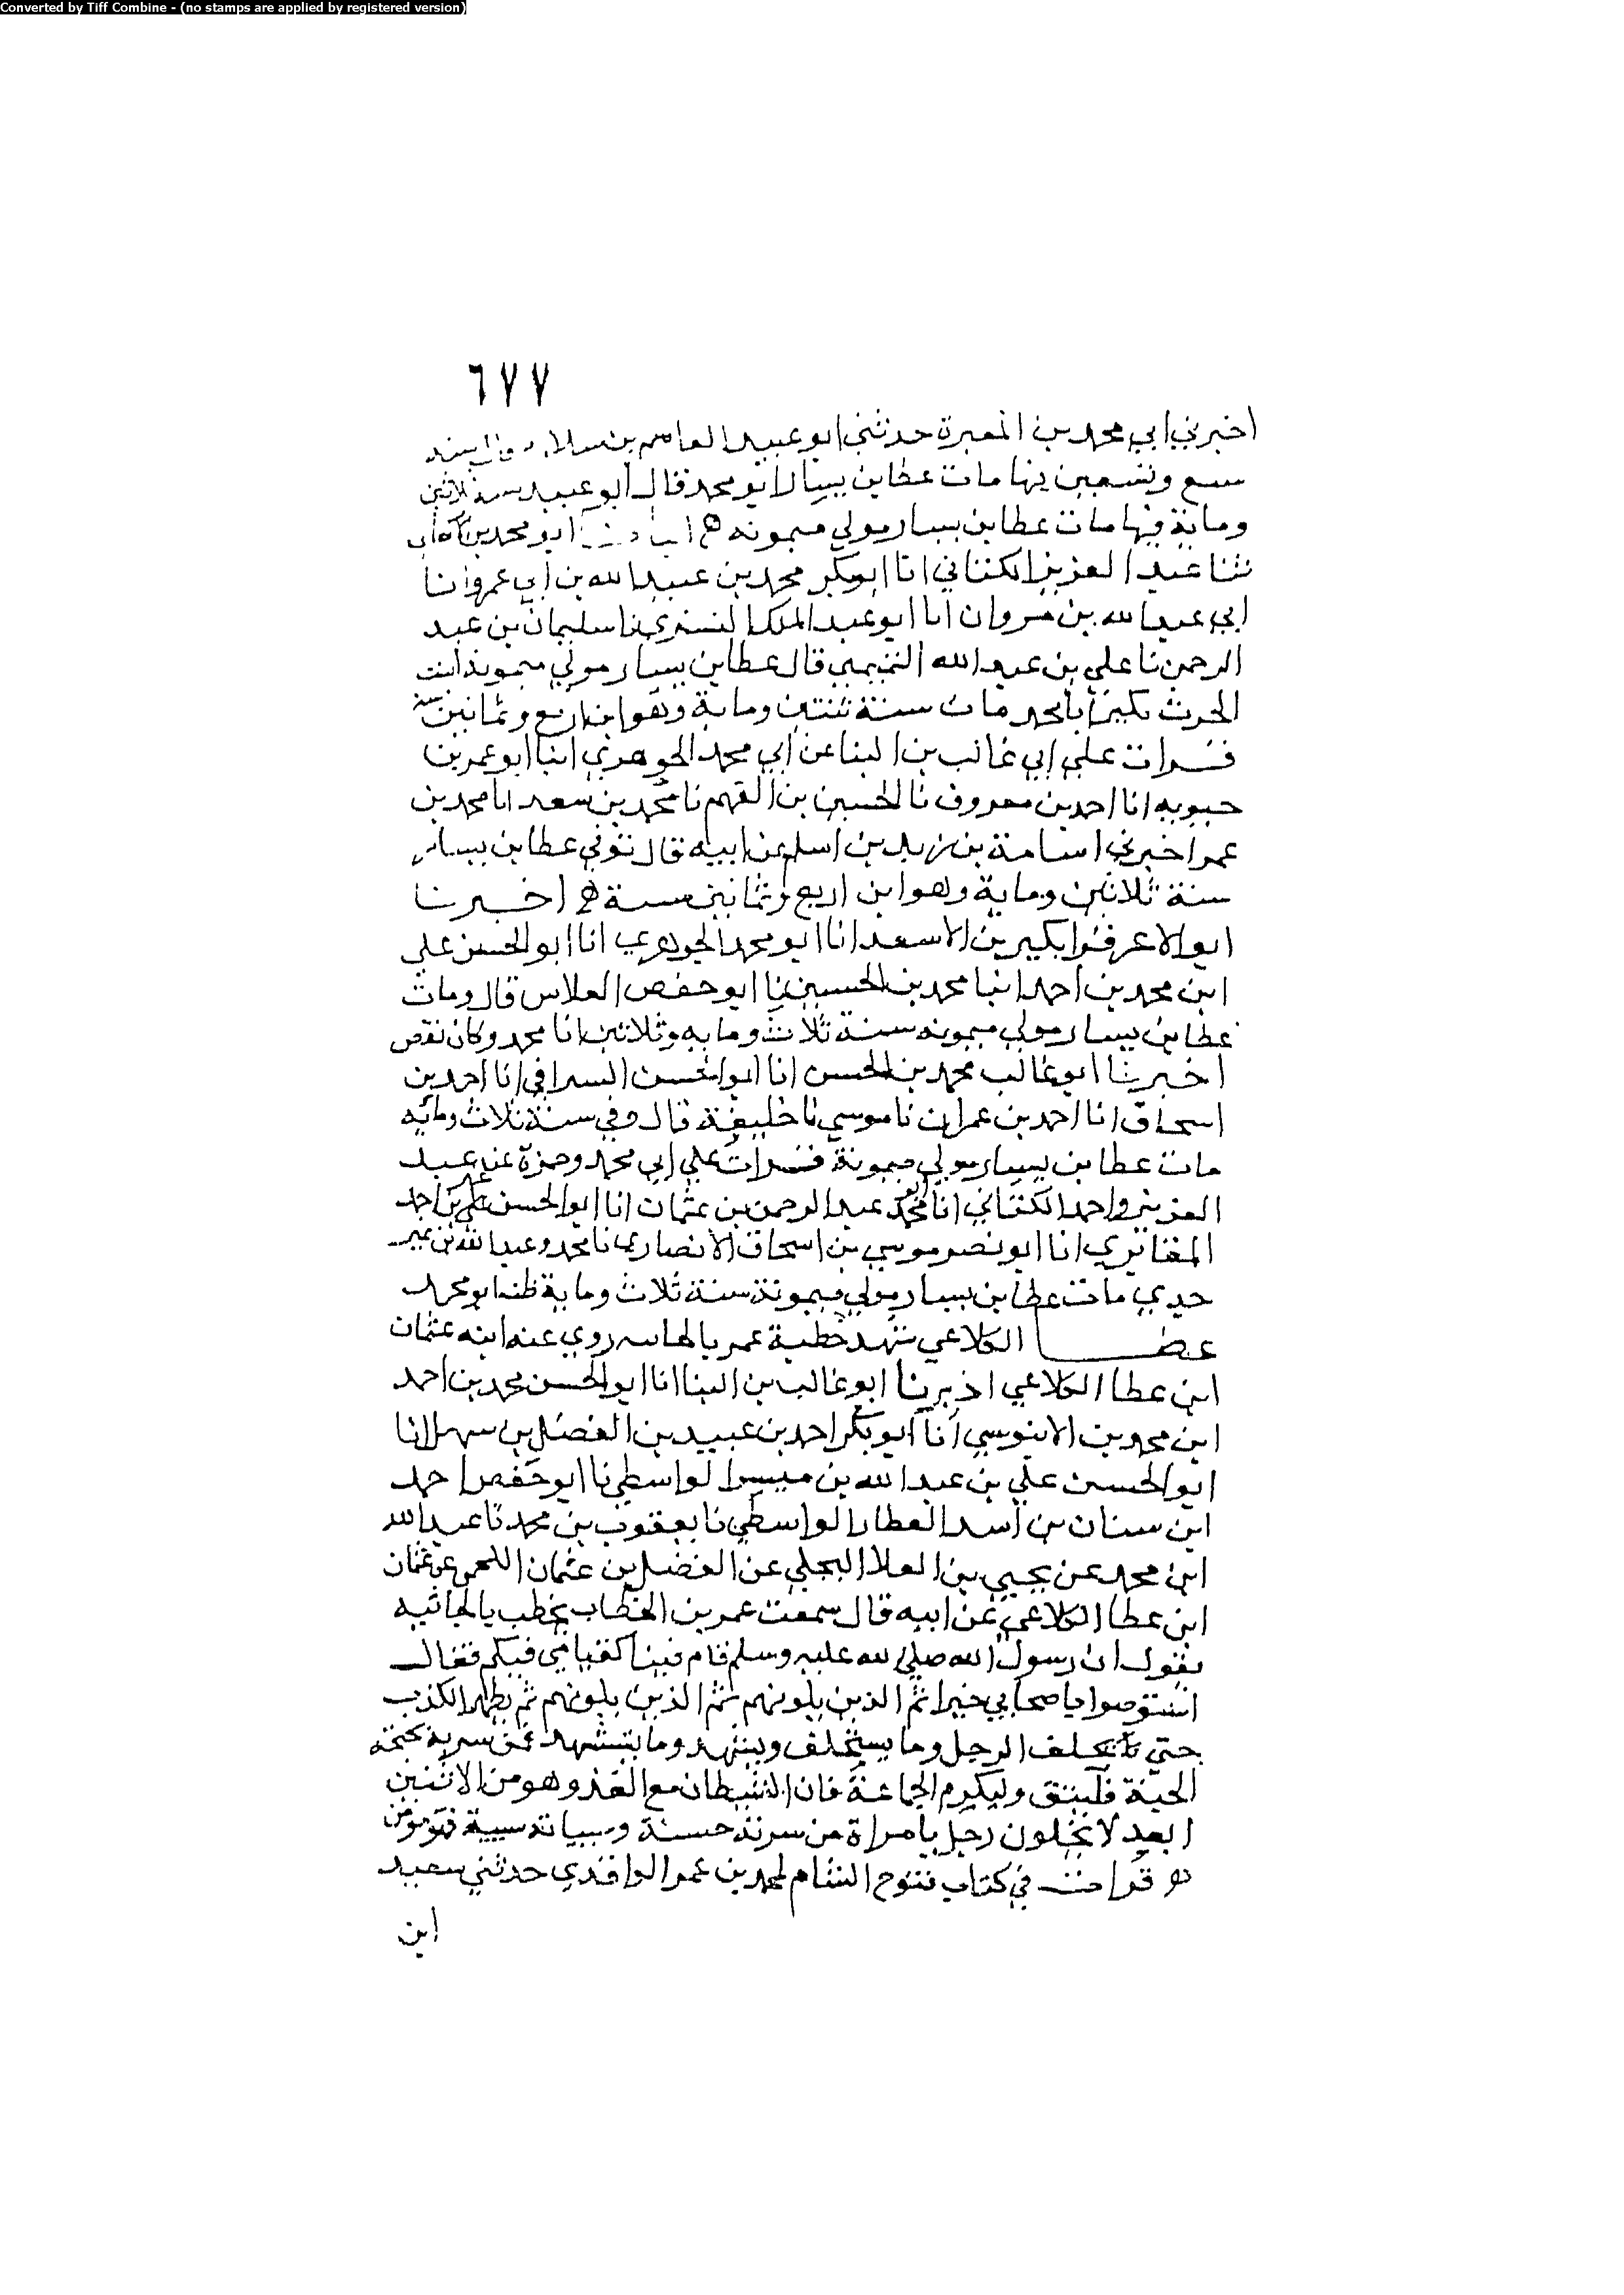 Converted by Tiff Combine - (no stamps are applied by registered version)
٦٧٧
اخبرني ابي محمد بن المغيرة حدثني ابو عبيد القاسم بن سلام
سبع وتسعين فيها مات عطا بن يسار ابو محمد قال ابو عبيد سنة ثلاثين
وماية فيها مات عطا بن يسار مولي ميمونه ابو محمد بن
ثنا عبد العزيز الكتاني انا ابو بكر محمد بن عبيد الله بن ابي عمرو انا
ابي عبد الله بن مروان انا ابو عبد الملك نا سليمان بن عبد
الرحمن نا علي بن عبد الله التميمي قال عطا بن يسار مولي ميمونة ابنت
الحرث يكني ابا محمد مات سنة ثنتين وماية وهو ابن اربع وثمانين سنة
قرات علي ابي غالب بن البنا عن ابي محمد الجوهري انبا ابو عمر بن
حيويه انا احمد بن معروف نا الحسين بن الفهم نا محمد بن سعد انا محمد بن
عمر اخبرني اسامة بن زيد بن اسلم عن ابيه قال توفي عطا بن يسار
سنة ثلاثين وماية وهو ابن اربع وثمانين سنة اخبرنا
ابو الاعز قراتكين بن الاسعد انا ابو محمد الجوهري انا ابو الحسن علي
ابن محمد بن احمد انبا محمد بن الحسين نا ابو حفص الفلاس قال ومات
عطا بن يسار مولي ميمونه سنة ثلاث ومايه وثلاثين انا محمد وكان نقص
اخبرنا ابو غالب محمد بن الحسن انا ابو الحسن السرافي انا احمد بن
اسحاق انا احمد بن عمران نا موسي نا خليفة قال وفي سنة ثلاث ومايه
مات عطا بن يسار مولي ميمونة قرات علي ابي محمد وحمزة عن عبد
العزيز واحمد الكتاني انا محمد عبد الرحمن بن عثمان انا ابو الحسن علي بن احمد
المقابري انا ابو نصر موسي بن اسحاق الانصاري نا محمد وعبد الله بن نمير
حدي مات عطا بن يسار مولي ميمونة سنة ثلاث وماية ظنه ابو محمد
عطا الكلاعي شهد خطبة عمر بالجابيه روي عنه ابنه عثمان
ابن عطا الكلاعي اخبرنا ابو غالب بن البنا انا ابو الحسن محمد بن احمد
ابن محمد بن الابنوسي انا ابو بكر احمد بن عبيد بن الفضل بن سهل انا
ابو الحسن علي بن عبد الله بن مبشر الواسطي نا ابو حفص احمد
ابن سنان بن اسد القطان الواسطي نا يعقوب بن محمد نا عبد الله
ابن محمد عن يحيي بن العلا البجلي عن الفضل بن عثمان عن عثمان
ابن عطا الكلاعي عن ابيه قال سمعت عمر بن الخطاب يخطب بالجابيه
يقول ان رسول الله صلي الله عليه وسلم قام فينا كقيامي فيكم فقال
استوصوا باصحابي خيرا ثم الذين يلونهم ثم الذين يلونهم ثم يظهر الكذب
حتي يحلف الرجل وما يستحلف ويشهد وما يستشهد فمن سره بحبحة
الجنة فليتق وليكرم الجماعة فان الشيطان مع الفذ وهو من الاثنين
ابعد لا يخلون رجل بامراة من سرته حسنة وسياته سيية فهو مومن
قرات في كتاب فتوح الشام لمحمد بن عمر الواقدي حدثني سعيد
ابن